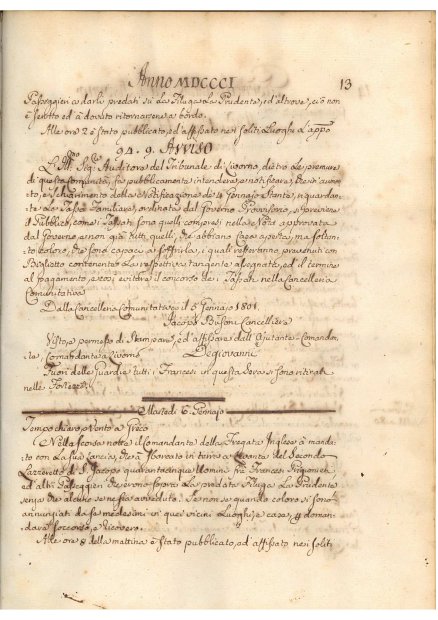 Anno MDCCCI 13
Passeggieri e darli predati su La Filuga La Prudente, ed altrove, ciò non
è seguito ed à dovuto ritornarsene a bordo.
Alle ore 2 è stato pubblicato, ed affissato nei soliti Luoghi L'appo
94. 9. AVVISO
L'Ill. Sig. Auditore del Tribunale di Livorno, dietro Le premure
di questa Comunità, fà pubblicamente intendere, e notificare, che in aumen-
to, e schiarimento della Notificazione de' 4 Gennajo stante, riguardan-
te La Tassa Familiare, ordinata dal Governo Provvisorio, si previene
il Pubblico, come i Tassati sono quelli compresi nella Nota approvata
dal Governo, e non già tutti quelli, che abbiano Casa aperta, ma soltan-
to coloro, che sono capaci a soffrirla, i quali resteranno prevenuti con
Biglietto contenente La respettiva tangente assegnata, ed il termine
al pagamento, e così evitare il concorso dei Tassati nella Cancelleria
Comunitativa
Dalla Cancelleria Comunitativa il 5 Gennajo 1801.
Jacopo Busoni Cancelliere
Visto, e permesso di stampare, ed affissare dall'Ajutante-Comandan-
te, Comandante a Livorno Degiovanni
Fuori delle Guardie tutti i Francesi in questa sera si sono ritirati
nelle Fortezze.
Martedì 6. Gennajo
Tempo chiaro, e Vento a Greco
Nella scorsa notte il Comandante della Fregata Inglese à manda-
to con La sua Lancia, che à sbarcato in terra a Levante del Secondo
Lazzeretto di S. Jacopo quarantacinque Uomini frà Francesi Prigionieri
ed altri Passeggieri che erono sopra La predata Filuga La Prudente
senza che alcuno ne sia avveduto. Se non se quando coloro si sono
annunziati da se medesimi in quei vicini Luoghi, e case, a doman-
dare soccorso, e Ricovero.
Alle ore 8 della mattina è stato pubblicato, ed affissato nei soliti